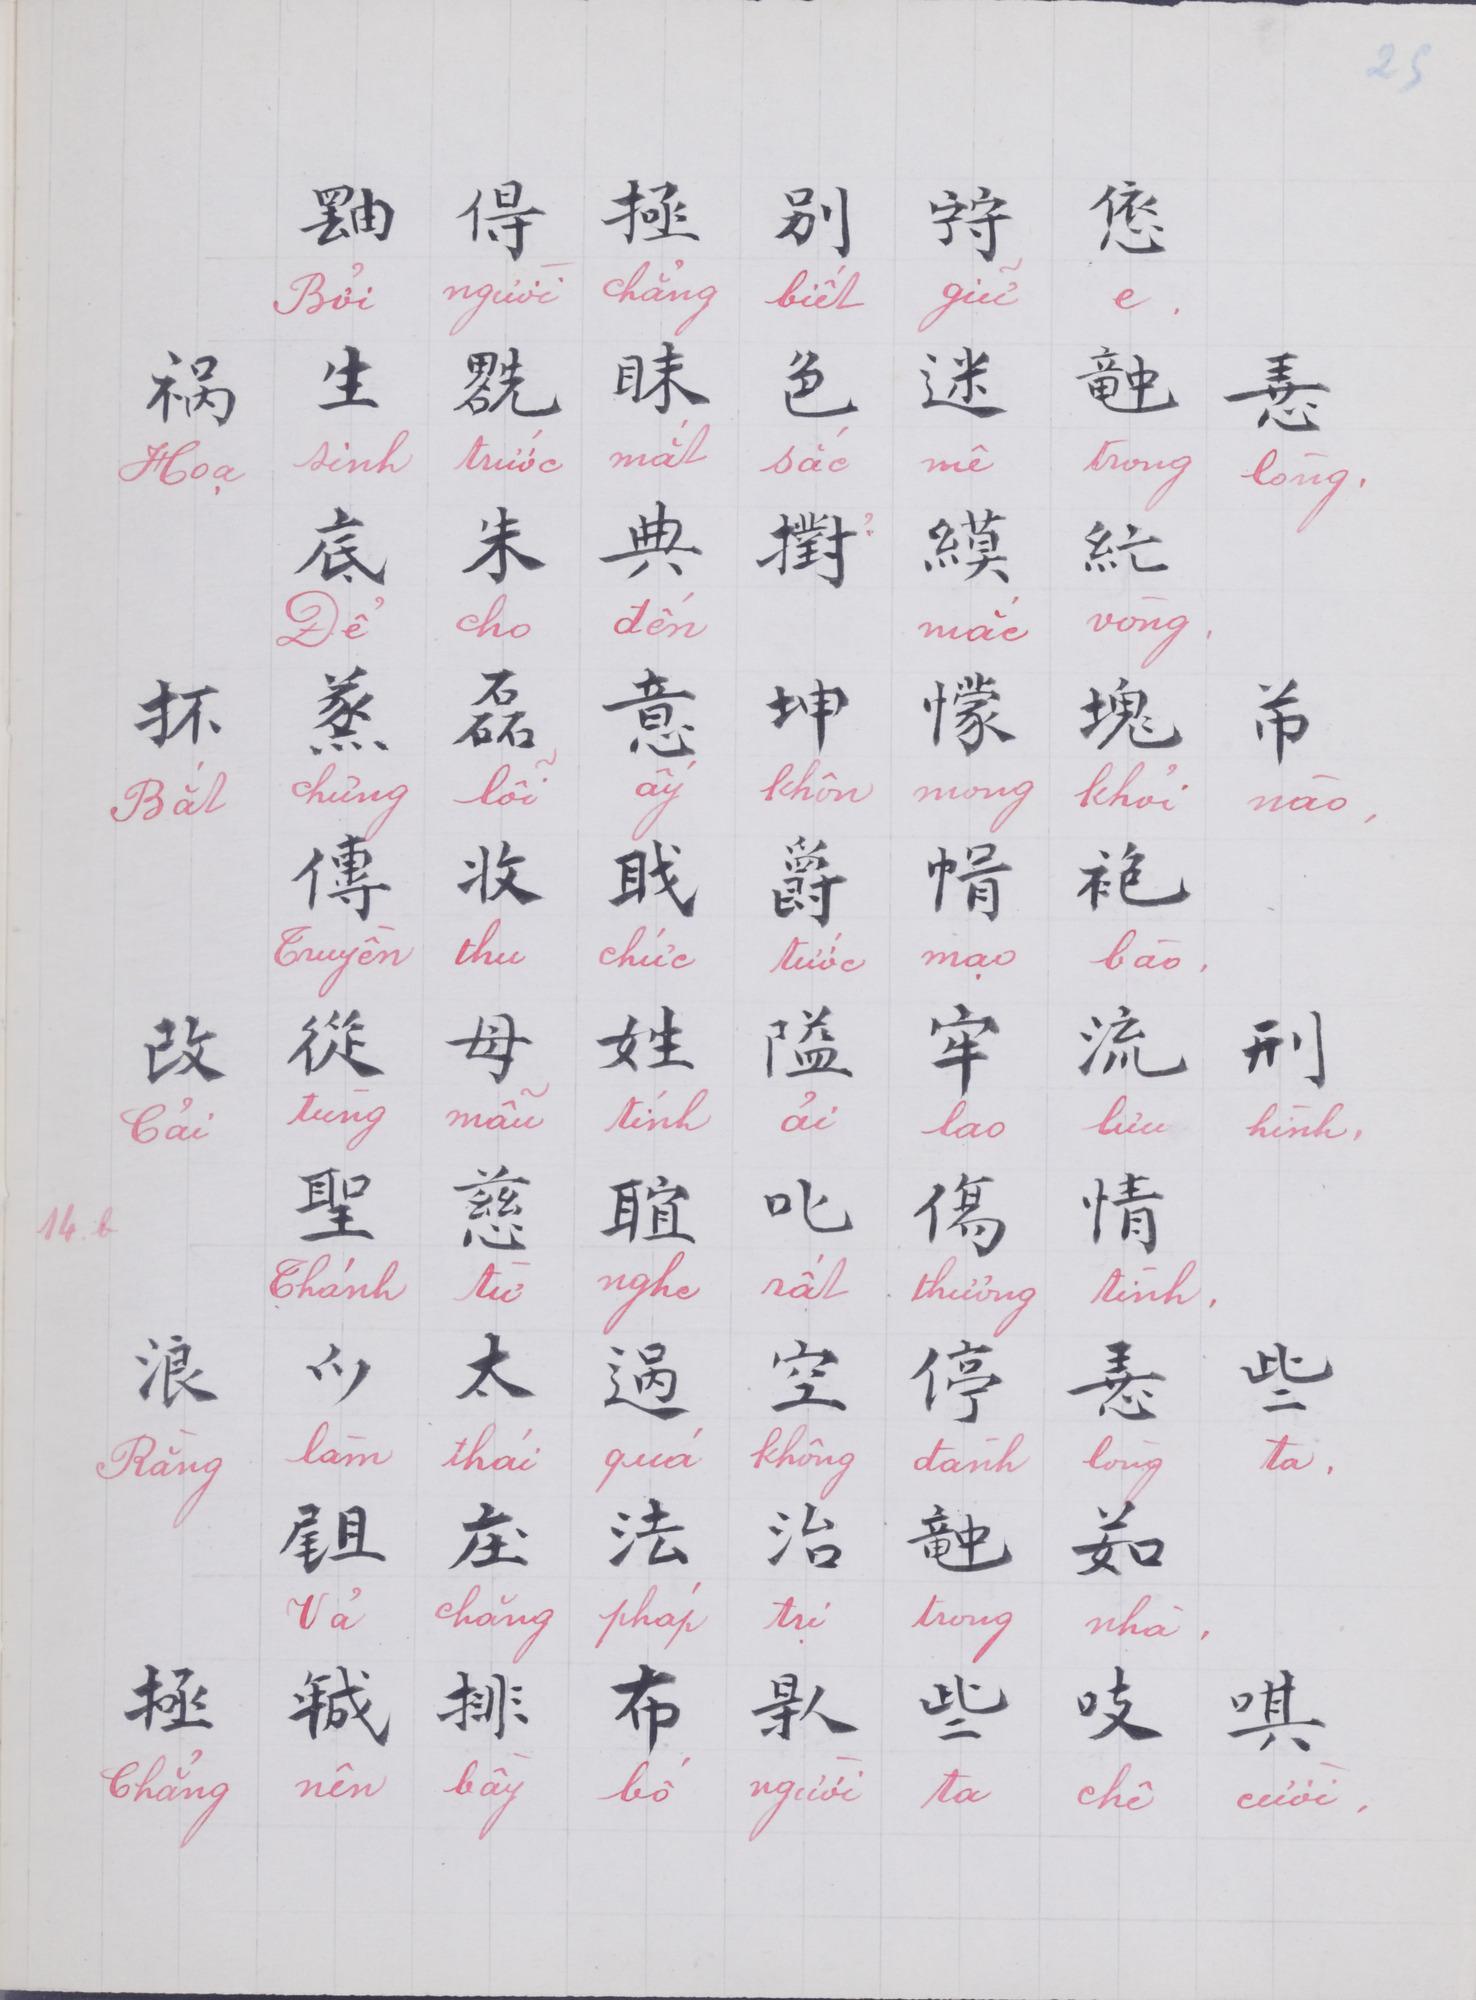 25
𪽝 得 拯 別 㝋 㥋
Bởi người chẳng biết giữ e,
禍 生 𠓀 眜 色 迷 𥪝 𢚸
Hoạ sinh trước mắt sắc mê trong lòng,
底 朱 典 㨃 縸 𥿂
Để cho đến mắc vòng,
抔 蒸 磊 意 坤 懞 塊 芇
Bắt chưng lỗi ấy khôn mong khỏi nào,
傳 收 戝 爵 帽 袍
Truyền thu chức tước mạo bào,
改 從 母 姓 隘 牢 流 刑
Cải tùng mẫu tính ải lao lưu hình,
聖 慈 𦖑 叱 傷 情
14.b
Thánh từ nghe rất thương tình,
浪 𫜵 太 過 空 停 𢚸 些
Rằng làm thái quá không đành lòng ta,
𡲤 庒 法 治 𥪝 茹
Vả chăng pháp trị trong nhà,
拯 𢧚 排 布 𠊚 些 吱 唭
Chẳng nên bầy bố người ta chê cười,